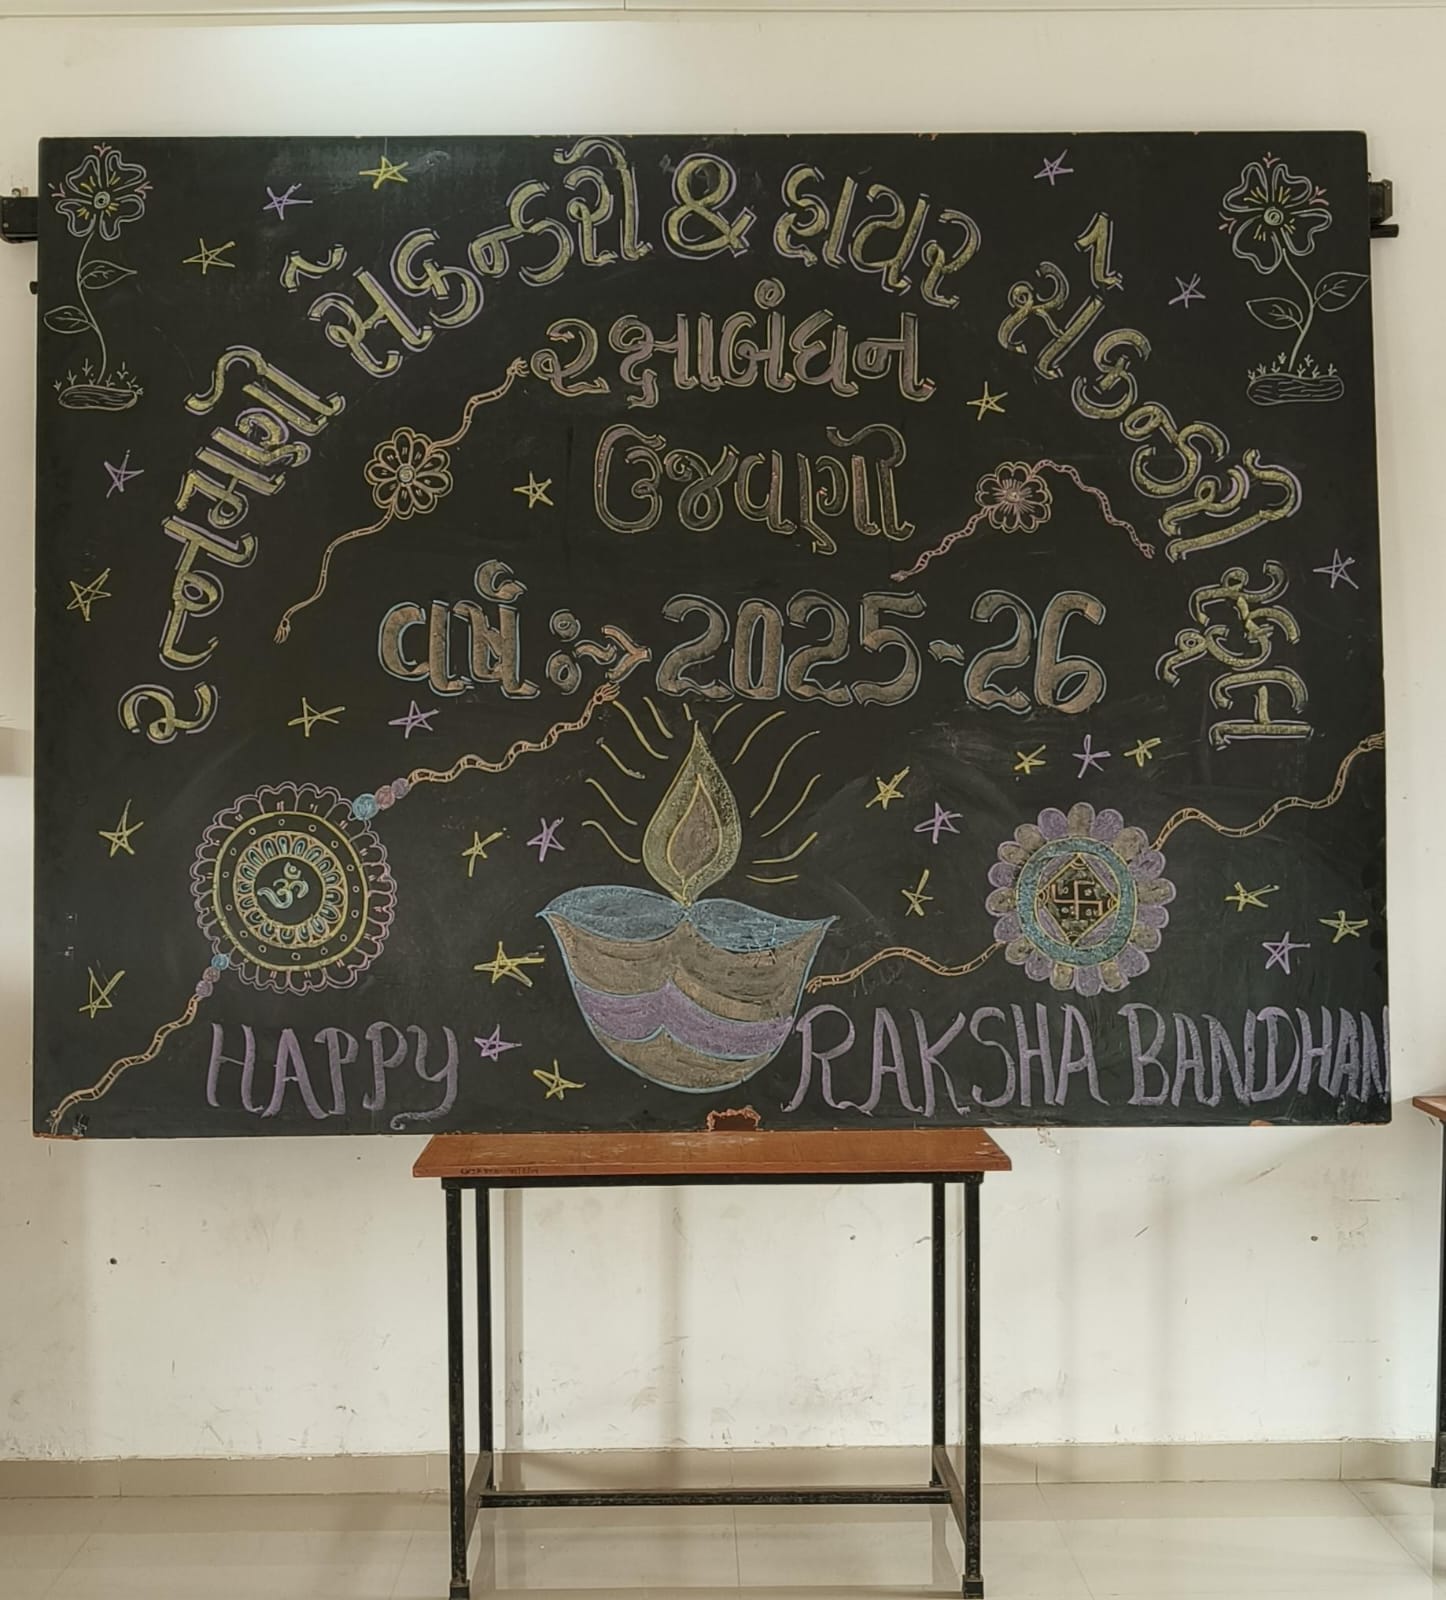 રત્નમણી સેકન્ડરી & હાયર સેકન્ડરી સ્કૂલ
રક્ષાબંધન
ઉજવણી
વર્ષ :-> 2025-26
ૐ
HAPPY RAKSHA BANDHAN